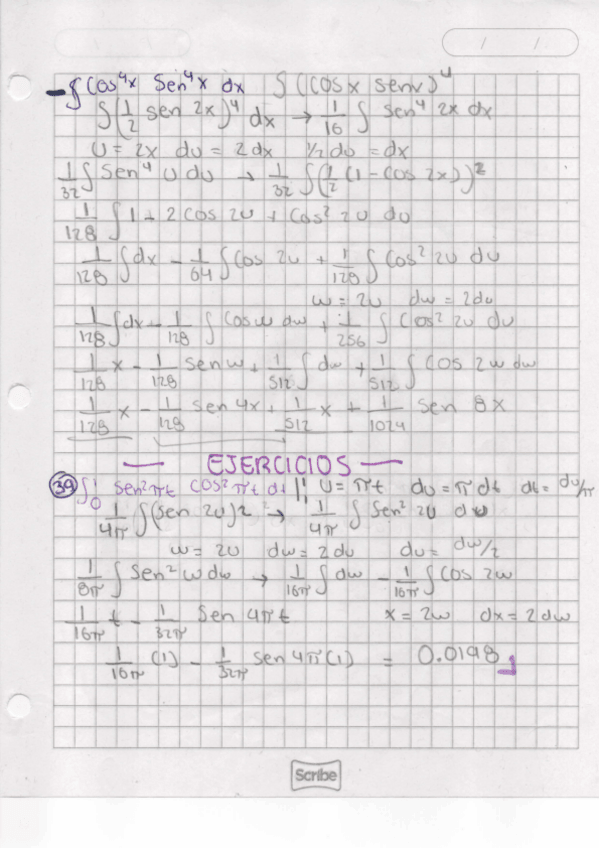 / /
- ∫ Cos⁴x Sen⁴x dx ∫ (cos x senx)⁴
∫ (1/2 sen 2x)⁴ dx → 1/16 ∫ sen⁴ 2x dx
U = 2x du = 2dx 1/2 du = dx
1/32 ∫ Sen⁴ U du → 1/32 ∫ (1/2 (1 - cos 2x))²
1/128 ∫ 1 - 2 cos 2u + Cos² 2u du
1/128 ∫ dx - 1/64 ∫ Cos 2u + 1/128 ∫ Cos² 2u du
w = 2u dw = 2du
1/128 ∫ dx - 1/128 ∫ Cos w dw + 1/256 ∫ Cos² 2u du
1/128 x - 1/128 sen w + 1/512 ∫ dw + 1/512 ∫ cos 2w dw
1/128 x - 1/128 sen 4x + 1/512 x + 1/1024 sen 8x
— EJERCICIOS —
39 ∫₀¹ sen²πt cos²πt dt || U = πt du = π dt dt = du/π
1/4π ∫ (sen 2u)² → 1/4π ∫ Sen² 2u du
w = 2u dw = 2du du = dw/2
1/8π ∫ Sen² w dw → 1/16π ∫ dw - 1/16π ∫ cos 2w
1/16π t - 1/32π Sen 4πt x = 2w dx = 2dw
1/16π (1) - 1/32π sen 4π(1) = 0.0198
Scribe